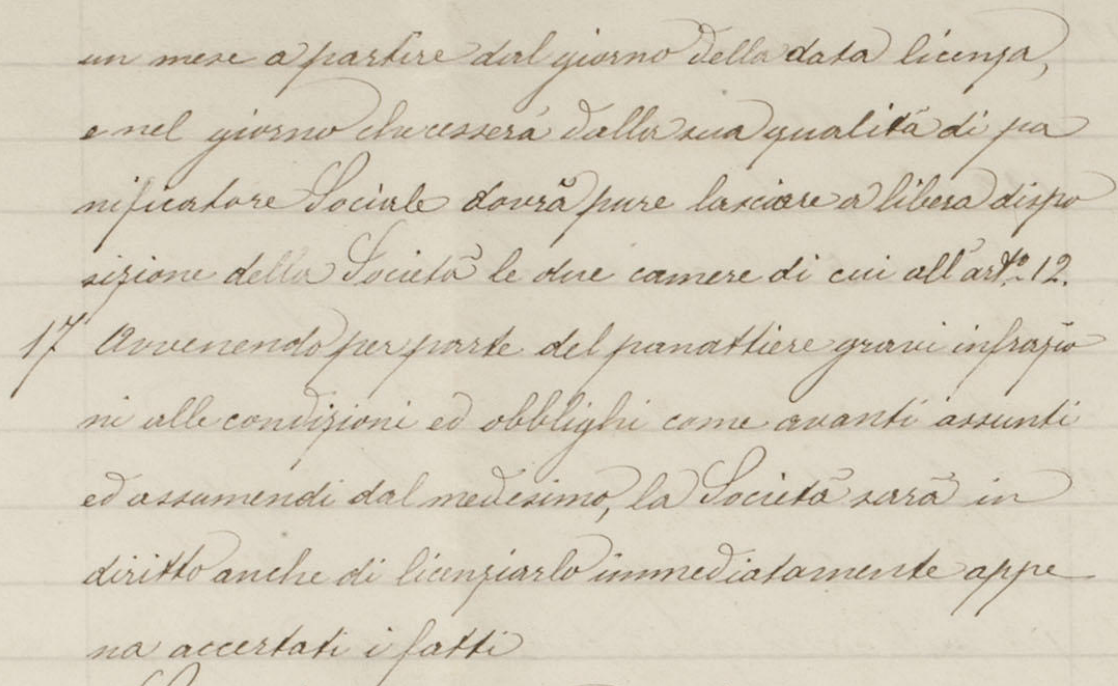 un mese a partire dal giorno della data licenza,
e nel giorno che cesserà dalla sua qualità di pa
nificatore Sociale dovrà pure lasciare a libera dispo
sizione della Società le due camere di cui all'arto. 12.
17 Avvenendo per parte del panattiere gravi infrazio
ni alle condizioni ed obblighi come avanti assunti
ed assumendi dal medesimo, la Società sarà in
diritto anche di licenziarlo immediatamente appe
na accertati i fatti